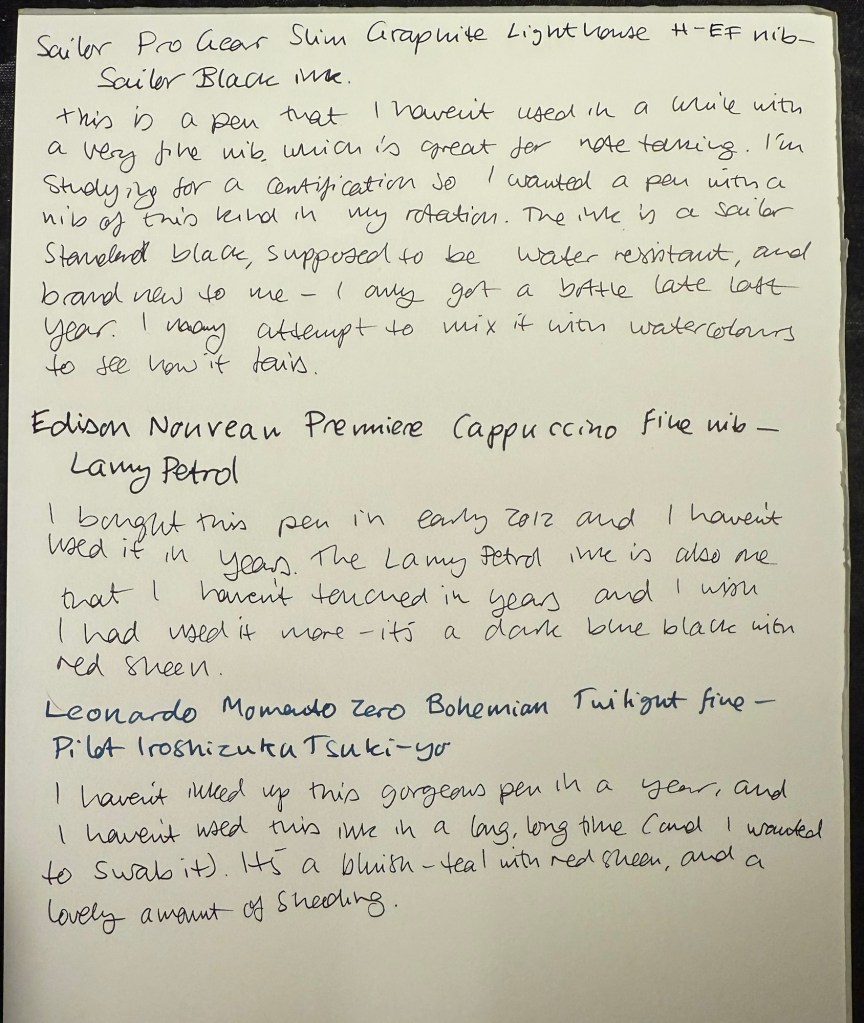 Sailor Pro Gear Slim Graphite Lighthouse H-EF nib –
Sailor Black ink.
This is a pen that I haven't used in a while with
a very fine nib, which is great for note taking. I'm
studying for a certification so I wanted a pen with a
nib of this kind in my rotation. The ink is a Sailor
Standard black, supposed to be water resistant, and
brand new to me – I only got a bottle late last
year. I may attempt to mix it with watercolours
to see how it fairs.
Edison Nouveau Premiere Cappuccino Fine nib –
Lamy Petrol
I bought this pen in early 2012 and I haven't
used it in years. The Lamy Petrol ink is also one
that I haven't touched in years and I wish
I had used it more – it's a dark blue black with
red sheen.
Leonardo Momento Zero Bohemian Twilight fine –
Pilot Iroshizuku Tsuki-yo
I haven't inked up this gorgeous pen in a year, and
I haven't used this ink in a long, long time (and I wanted
to swab it). It's a bluish-teal with red sheen, and a
lovely amount of sheeding.